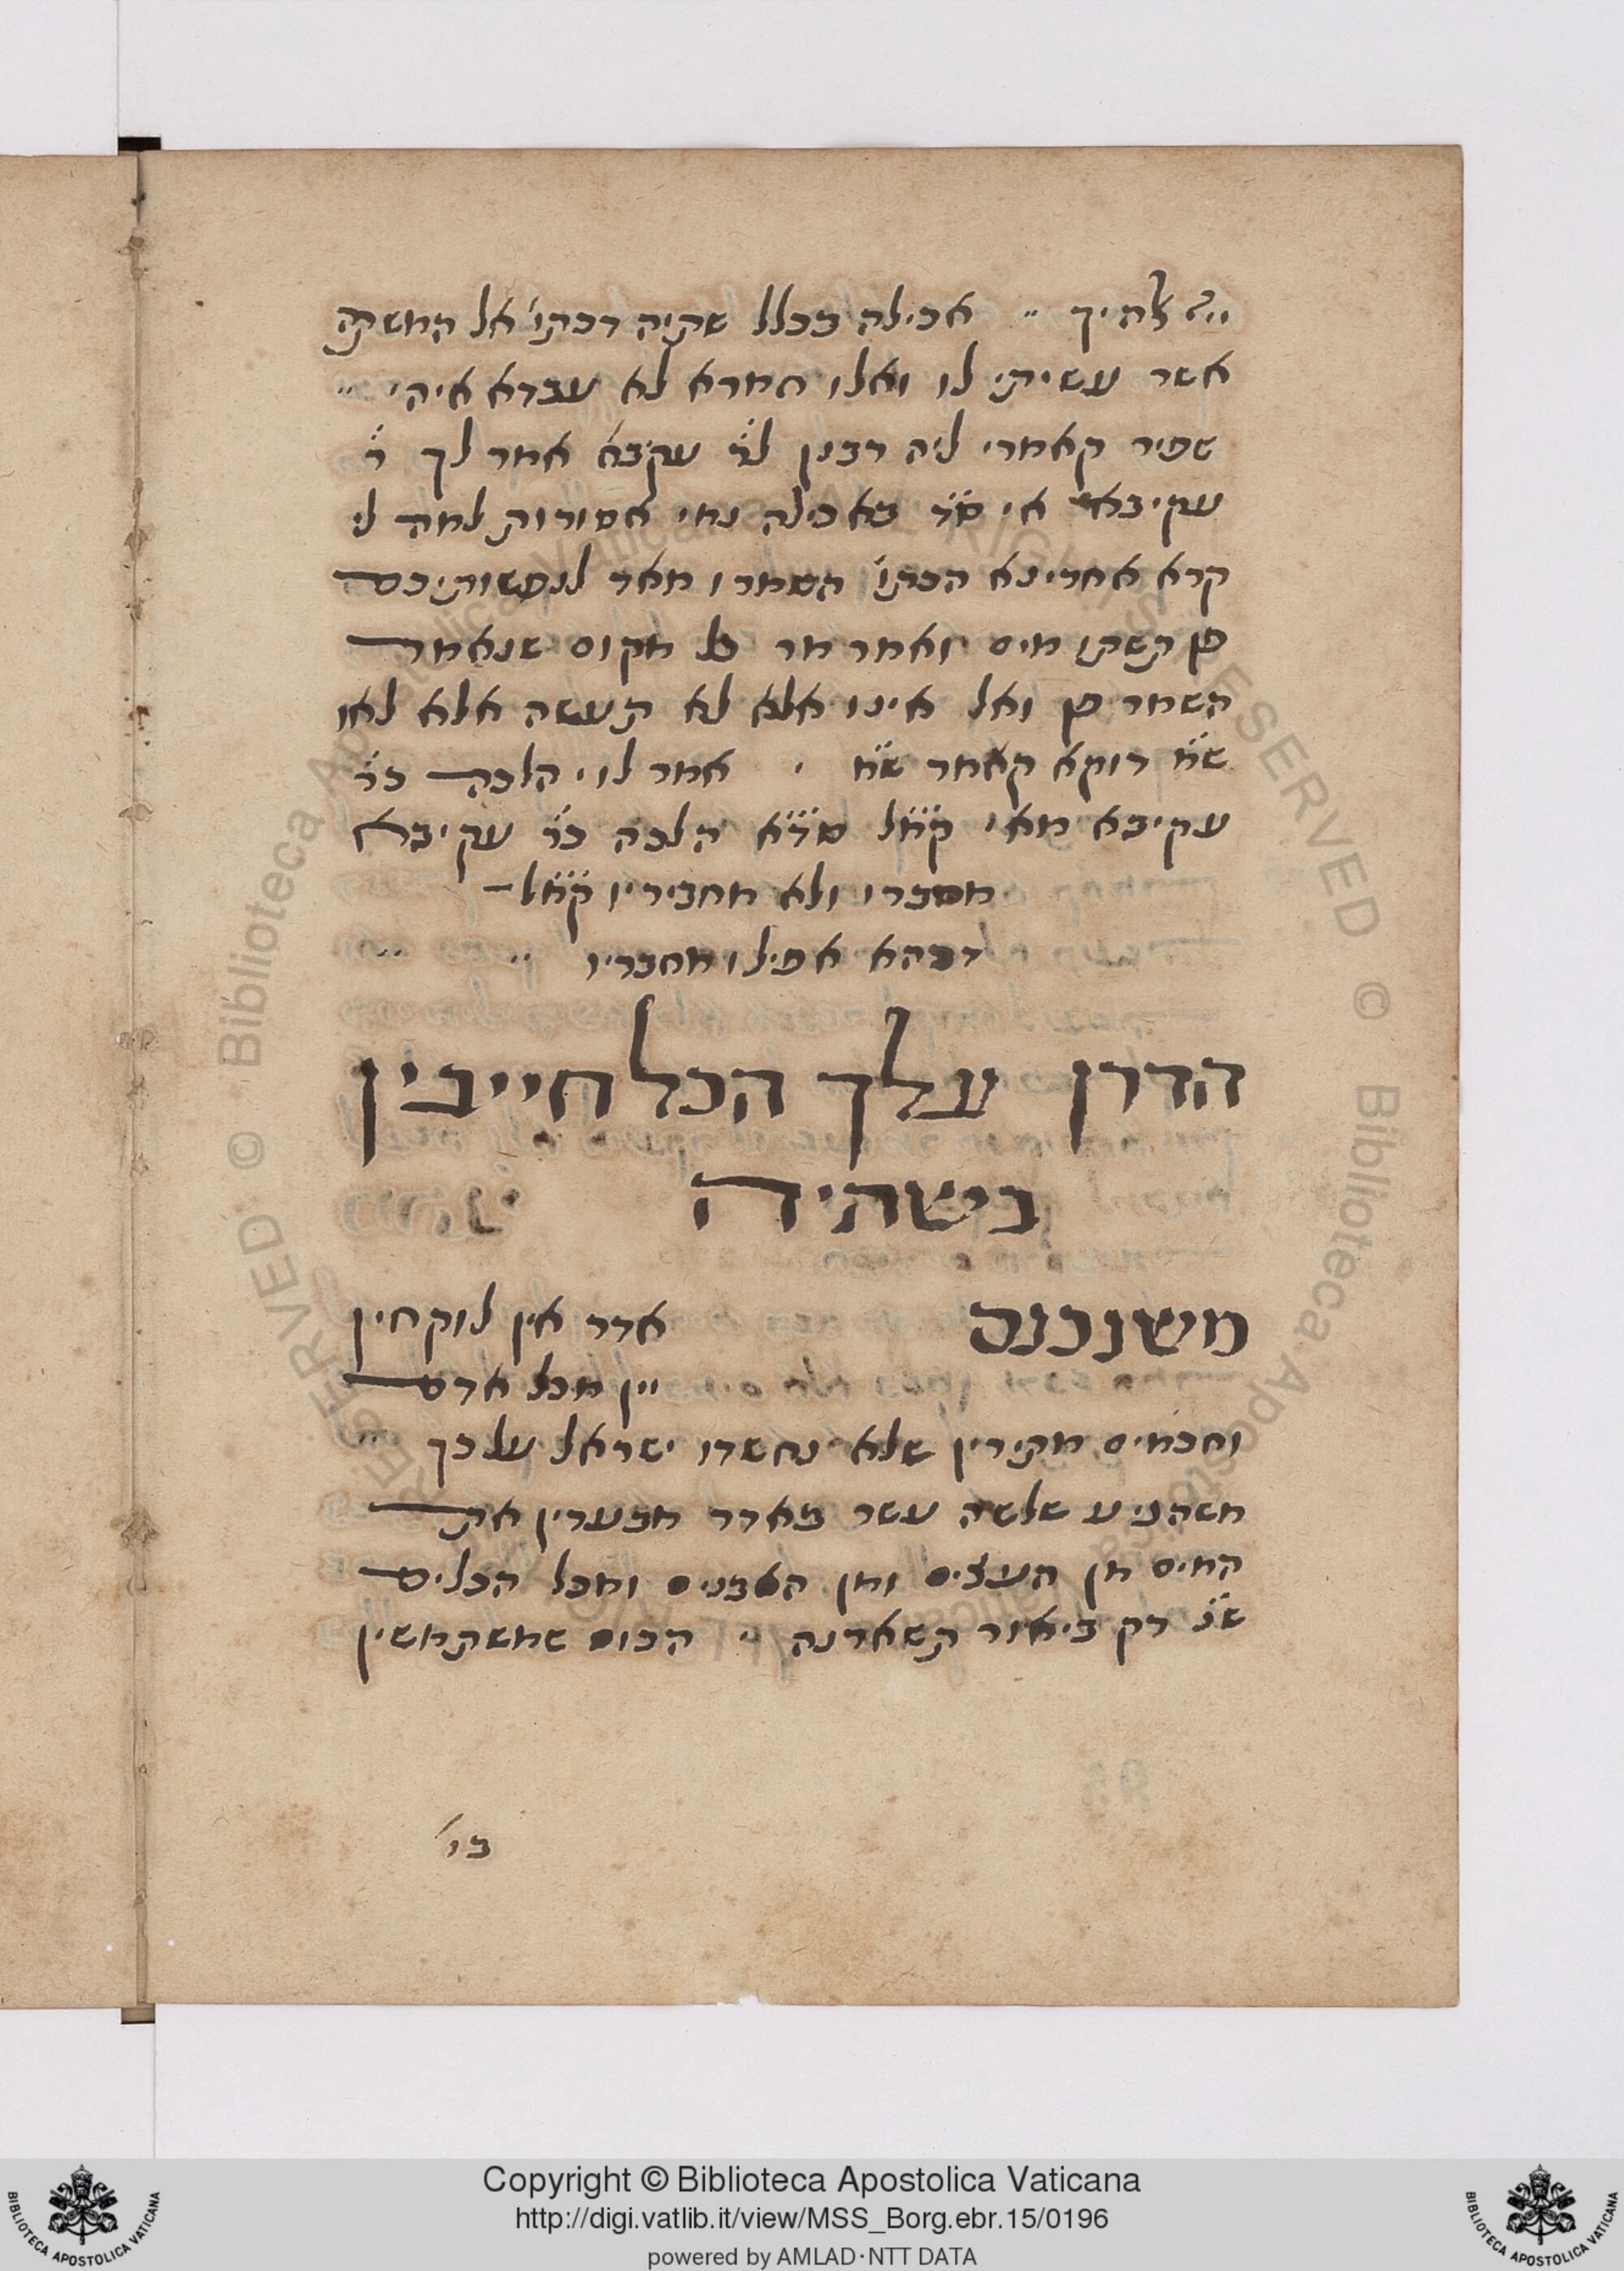 יי אלהיך ״ אכילה בכלל שתיה דכתי׳ אל המשתה
אשר עשיתי לו ואלו חמרא לא עבדא איהי ״
שפיר קאמרי ליה רבנן לר׳ עקיבא אמר לך ר׳
עקיבא אי ס״ד באכילה נמי אסורות למה לי
קרא אחרינא הכתי׳ השמרו מאד לנפשותיכם
פן תשתו מים ואמר מר כל מקום שנאמר
השמר פן ואל אינו אלא לא תעשה אלא לאו
ש״מ דוקא קאמר ש״מ ׳ אמר לוי הלכה כר׳
עקיבא מאי ק״מ״ל ס״ד״א הלכה כר׳ עקיבא
מחברו ולא מחביריו ק״מ״ל –
דבהא אפילו מחבריו ״ ״
הדרן עלך הכל חייבין
בשתיה
משנכנס
אדר אין לוקחין
יין מכל אדם
וחכמים מתירין שלא נחשדו ישראל על כך ״
משהגיע שלשה עשר באדר מבערין את
המים מן העצים ומן האבנים ומכל הכלים
ש״נ דק ביאור קשאדנה ״ הכוס שמשתמשין
בו׳
Copyright © Biblioteca Apostolica Vaticana
http://digi.vatlib.it/view/MSS_Borg.ebr.15/0196
powered by AMLAD·NTT DATA
BIBLIOTECA APOSTOLICA VATICANA
BIBLIOTECA APOSTOLICA VATICANA